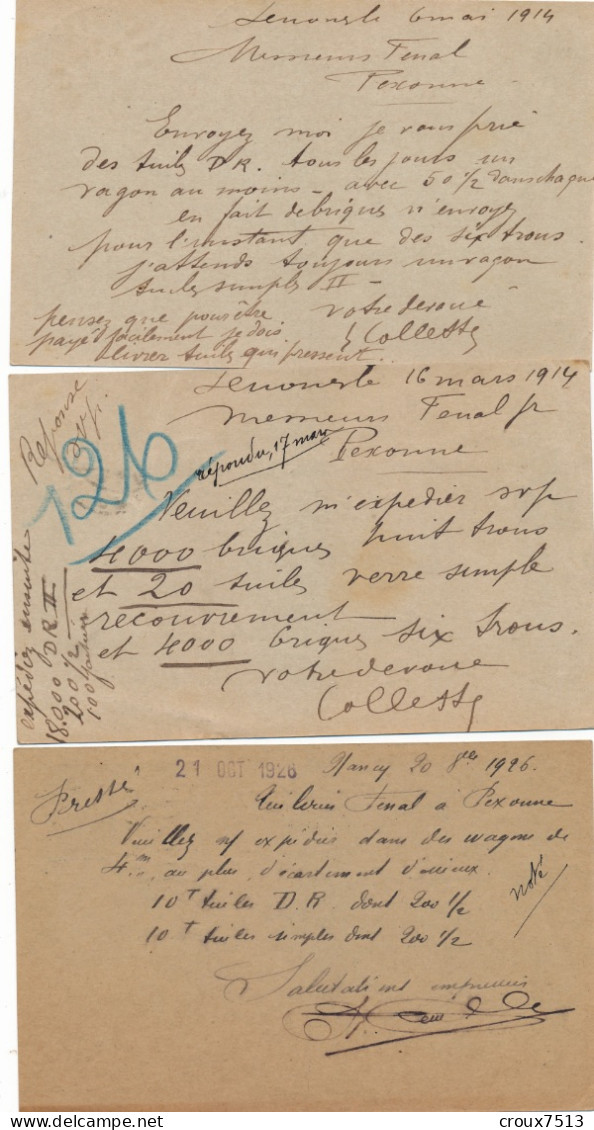 6 mai 1914
Messieurs Fenal
Pexonne
Envoyez moi je vous prie
des tuiles DR. tous les jours un
vagon au moins - avec 50 1/2 dans chaque
en fait de briques n'envoyez
pour l'instant que des six trous.
j'attends toujours un vagon
tuiles simples II -
pensez que pour être
votre dévoué
payé facilement je dois
Collette
livrer tuiles qui pressent.
16 mars 1914
Réponse
Messieurs Fenal fr
126
répondu, 17 mars
Pexonne
Veuillez m'expédier svp
4000 briques huit trous
et 20 tuiles verre simple
recouvrement
et 4000 briques six trous.
votre dévoué
Collette
expédiez ensuite
18.000 DR II
200 1/2
100
21 OCT 1926
Nancy 20 8bre 1926.
Pressé
Tuilerie Fenal à Pexonne
Veuillez n/ expédier dans des wagons de
4m au plus d'écartement d'essieux.
10T tuiles D.R. dont 200 1/2
noté
10T tuiles simples dont 200 1/2
Salutations empressées
delcampe.net
croux7513